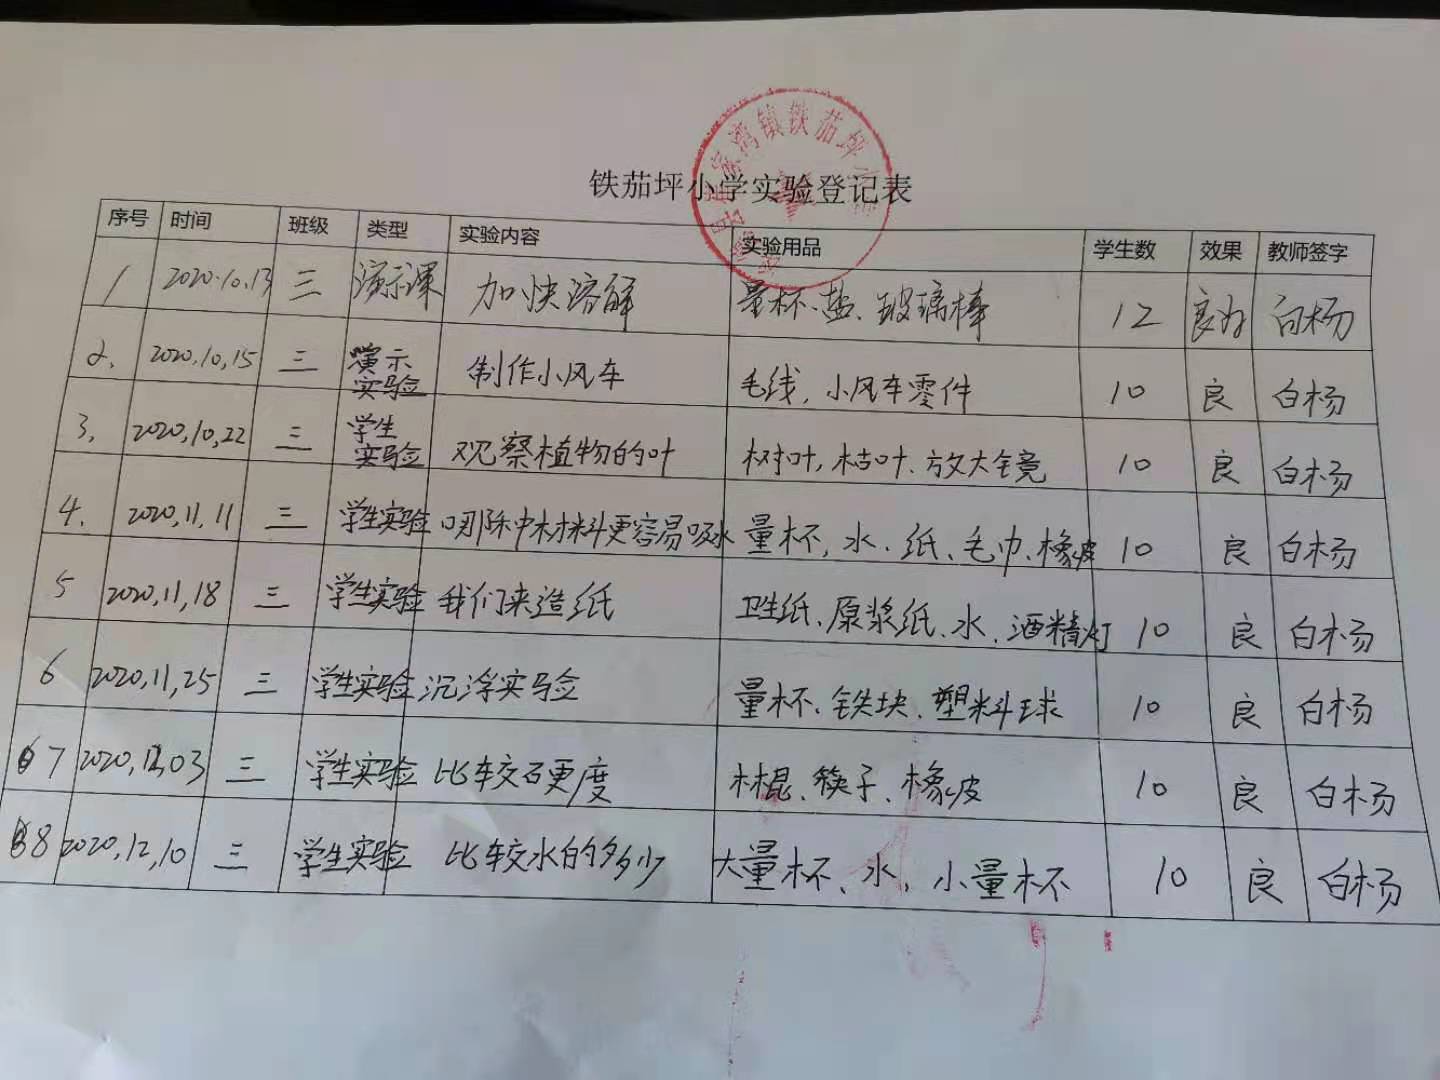 铁茄坪小学实验登记表
序号 时间 班级 类型 实验内容 实验用品 学生数 效果 教师签字
1 2020.10.13 三 演示课 加快溶解 量杯、盐、玻璃棒 12 良好 白杨
2. 2020,10,15 三 演示实验 制作小风车 毛线,小风车零件 10 良 白杨
3. 2020,10,22 三 学生实验 观察植物的叶 树叶,枯叶、放大镜 10 良 白杨
4. 2020,11,11 三 学生实验 哪种材料更容易吸水 量杯,水、纸、毛巾、橡皮 10 良 白杨
5 2020,11,18 三 学生实验 我们来造纸 卫生纸、原浆纸、水、酒精灯 10 良 白杨
6 2020,11,25 三 学生实验 沉浮实验 量杯、铁块、塑料球 10 良 白杨
7 2020,12,03 三 学生实验 比较硬度 木棍、筷子、橡皮 10 良 白杨
8 2020,12,10 三 学生实验 比较水的多少 大量杯、水,小量杯 10 良 白杨
湾镇铁茄坪